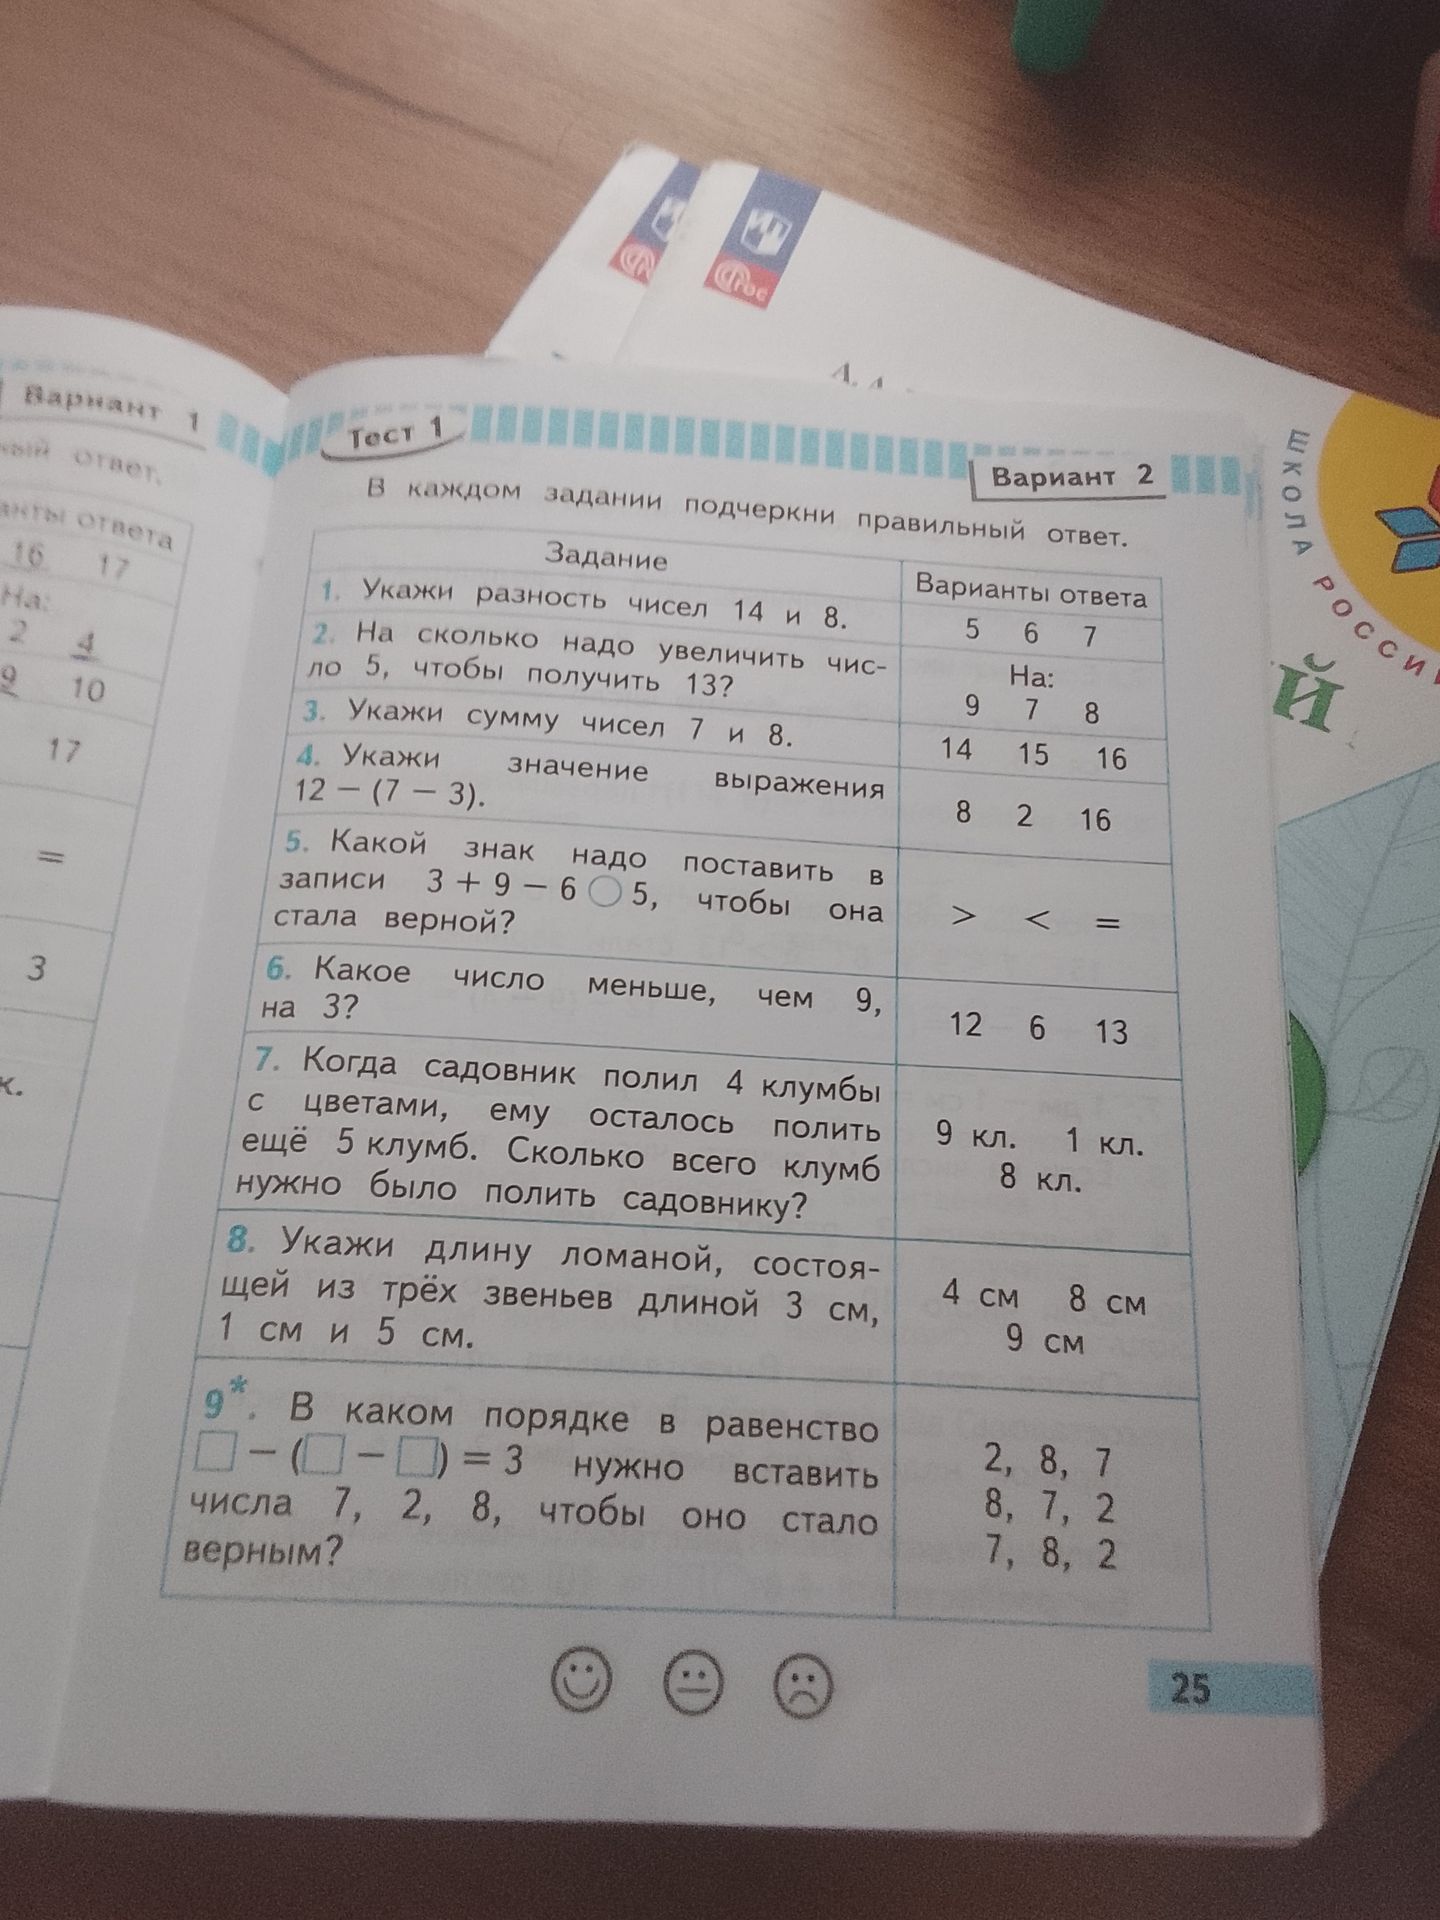 Вариант 1
ответ.
ответа
16 17
На:
2 4
9 10
17
=
3
к.
Тест 1
Вариант 2
В каждом задании подчеркни правильный ответ.
Задание
Варианты ответа
1. Укажи разность чисел 14 и 8.
5 6 7
2. На сколько надо увеличить чис-
ло 5, чтобы получить 13?
На:
9 7 8
3. Укажи сумму чисел 7 и 8.
14 15 16
4. Укажи значение выражения
12 − (7 − 3).
8 2 16
5. Какой знак надо поставить в
записи 3 + 9 − 6 ○ 5, чтобы она
стала верной?
> < =
6. Какое число меньше, чем 9,
на 3?
12 6 13
7. Когда садовник полил 4 клумбы
с цветами, ему осталось полить
ещё 5 клумб. Сколько всего клумб
нужно было полить садовнику?
9 кл. 1 кл.
8 кл.
8. Укажи длину ломаной, состоя-
щей из трёх звеньев длиной 3 см,
1 см и 5 см.
4 см 8 см
9 см
9*. В каком порядке в равенство
□ − (□ − □) = 3 нужно вставить
числа 7, 2, 8, чтобы оно стало
верным?
2, 8, 7
8, 7, 2
7, 8, 2
25
ШКОЛА РОССИИ
Й